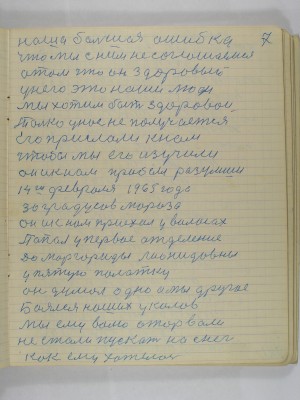 7
наша болшая ошибка
что мы с ним не соглошаемся
о том что он здоровый
у него это наши люди
мы хотим быть здоровои
толко у нос не получается
его прислали к нам
чтобы мы его азучили
он ик нам прибыл разумиш
14го февраля 1965 года
30 градусов мороза
он ик нам приехал у валасах
Попал у первое отделение
До маргариды леонидовны
у пятую полотку
он думол одно а ты другое
Боялся наших уколов
мы ему вамо оторвали
не стали пускат на снег
как ему хотелос